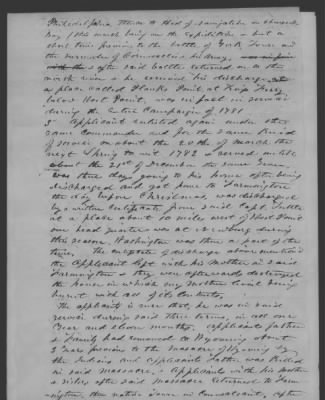 Philadelphia thence to Head of
Bay (this march being on the expedition & but a
short time previous to the battle of York Town and
the surrender of Cornwallis &
& after said battle returned on to the
north river & he received his discharge at
a place called Kings Ferry
below West Point, was in fact in service
during the entire Campaign of 1781
3d Applicant enlisted again under the
same Commander and for the same kind
of service on about the 20th of March the
next Spring to wit 1782 & served untill
about the 22nd of December the same year
was three days going to his home after being
discharged and got home to Farmington
the day before Christmas, was discharged
by a written Certificate from said Capt.
at a place about 10 miles west of West Point
our head quarters was at Newburg during
this season. Washington was there a part of the
time. The certificate of discharge above mentioned
the applicant left with his Mother in said
Farmington & they were afterwards destroyed
the house in which my mother lived being
burnt with all of its contents.
The applicant is sure that he was in said
service during said three terms, in all one
year and eleven months. Applicants father
& family had removed to Wyoming about
3 years previous to the massacre of Wyoming by
the Indians and applicants father was killed
in said massacre, & Applicant with his mother
& sisters after said massacre returned to Farm-
ington, their native town in Connecticut, after